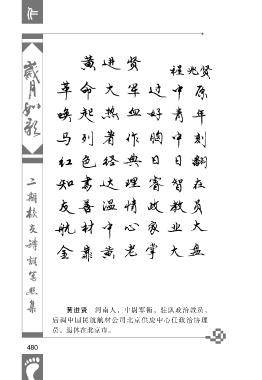 作
岁月如歌
二期校友诗词写照集
黄进贤
程兆贤
革命大军过中原
唤起热血好青年
马列著作胸中刻
红色经典日日翻
知书达理睿智在
友善温情政教员
航材中心家业大
金靠黄老掌大盘
黄进贤 河南人，中尉军衔，驻队政治教员，
后调中国民航航材公司北京供应中心任政治协理
员，退休在北京市。
480